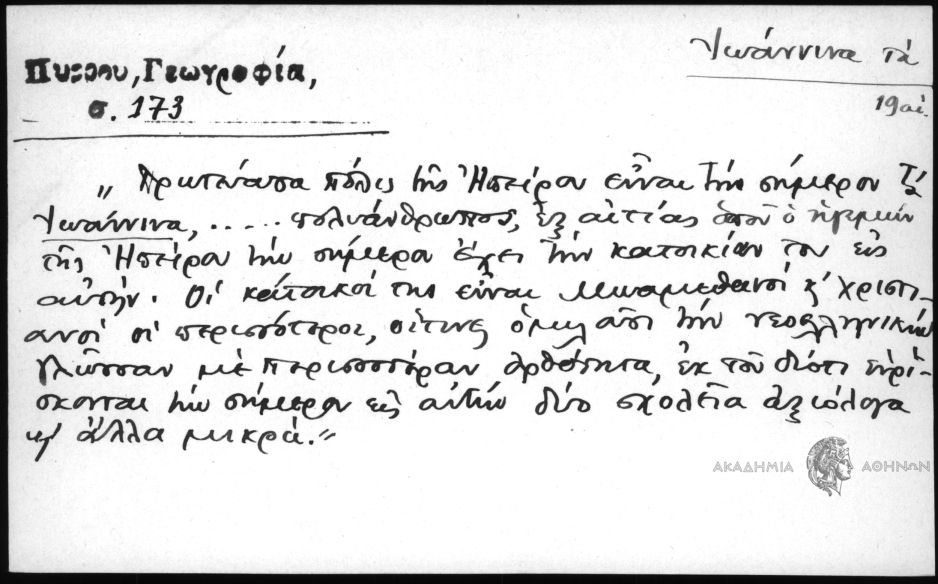 Ἰωάννινα τά
Πύρρου, Γεωγραφία,
σ. 173
19 αἰ.
„ Πρωτεύουσα πόλις τῆς Ἠπείρου εἶναι τὴν σήμερον τά
Ἰωάννινα, ..... πολυάνθρωπος, ἐξ αἰτίας ὁποῦ ὁ ἡγεμὼν
τῆς Ἠπείρου τὴν σήμερον ἔχει τὴν κατοικίαν του εἰς
αὐτήν. Οἱ κάτοικοί της εἶναι Μωαμεθανοί κ' χριστι-
ανοί οἱ περισσότεροι, οἵτινες ὁμιλοῦσι τὴν νεοελληνικήν
γλῶσσαν μὲ περισσοτέραν ὀρθότητα, ἐκ τοῦ διότι εὑρί-
σκονται τὴν σήμερον εἰς αὐτὴν δύο σχολεῖα ἀξιόλογα
κ' ἄλλα μικρά."
ΑΚΑΔΗΜΙΑ ΑΘΗΝΩΝ